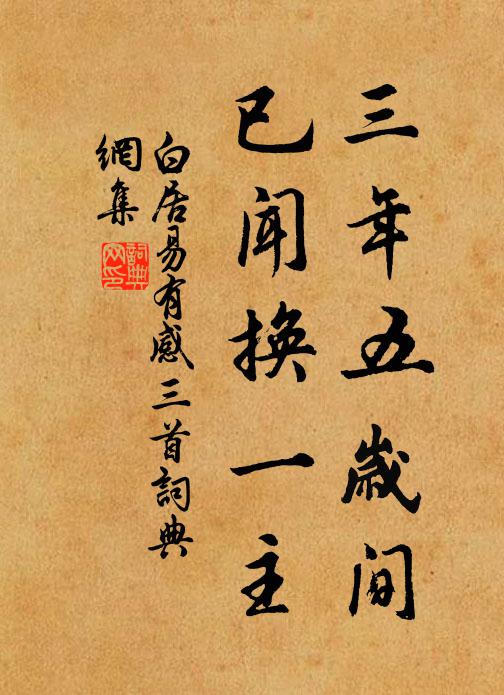 三年五歲间
已闻換一主
白居易有感三首詞典
網集
詞典
网印